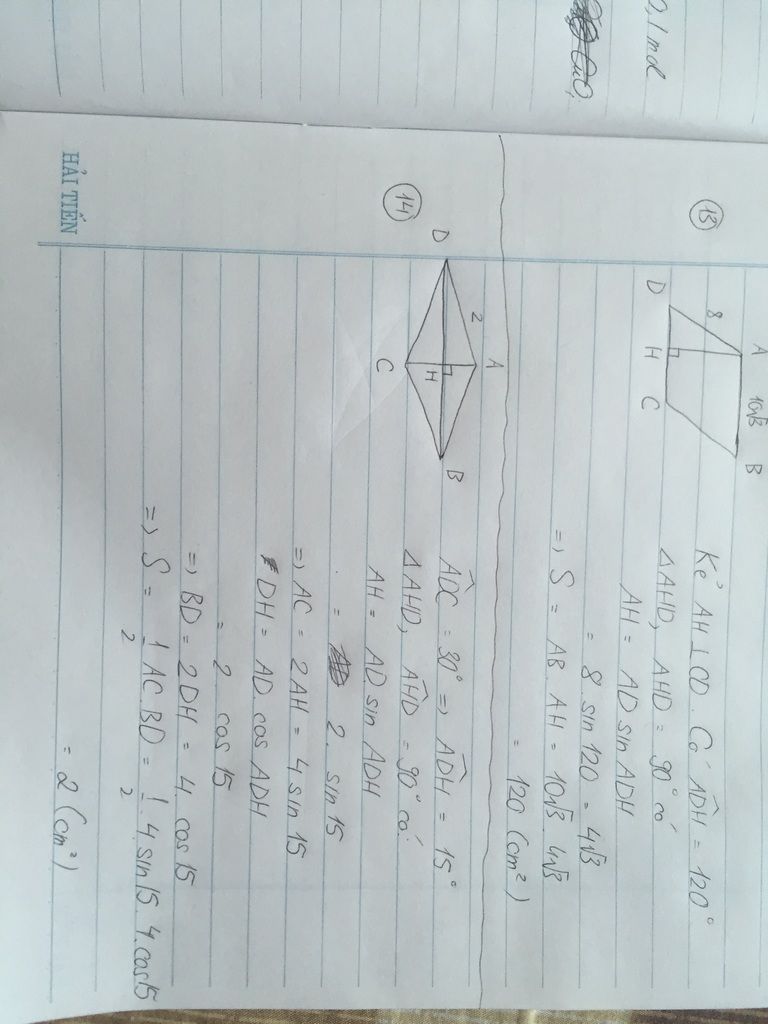 0,1 mol
CuO,
HẢI TIẾN
13
A 10√3 B
8
D H C
Kẻ AH ⊥ CD. Có ADH = 120°
ΔAHD, AHD = 90° có
AH = AD sin ADH
= 8. sin 120 = 4√3
=> S = AB. AH = 10√3. 4√3
= 120 (cm²)
14
A
2
D H B
C
ADC = 30° => ADH = 15°
ΔAHD, AHD = 90° có:
AH = AD sin ADH
= 2. sin 15
=> AC = 2AH = 4 sin 15
DH = AD. cos ADH
= 2 cos 15
=> BD = 2DH = 4. cos 15
=> S = 1/2 AC. BD = 1/2. 4. sin 15. 4. cos 15
= 2 (cm²)